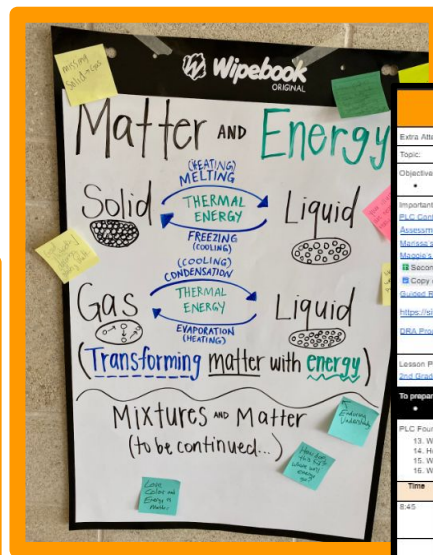 missing
Solid → Gas
Wipebook
ORIGINAL
Matter AND Energy
(HEATING)
MELTING
Solid
THERMAL
ENERGY
Liquid
FREEZING
(COOLING)
(COOLING)
CONDENSATION
Gas
THERMAL
ENERGY
Liquid
EVAPORATION
(HEATING)
(Transforming matter with energy)
Mixtures AND Matter
(to be continued...)
Enduring
Understanding
Love
Color and
Energy in
Matter
Extra Atte
Topic:
Objective
Important
PLC Cont
Assessm
Marissa's
Maggie's
Secon
Copy
Guided R
https://si
DRA Prog
Lesson P
2nd Grad
To prepar
PLC Four
13. W
14. H
15. W
16. W
Time
8:45